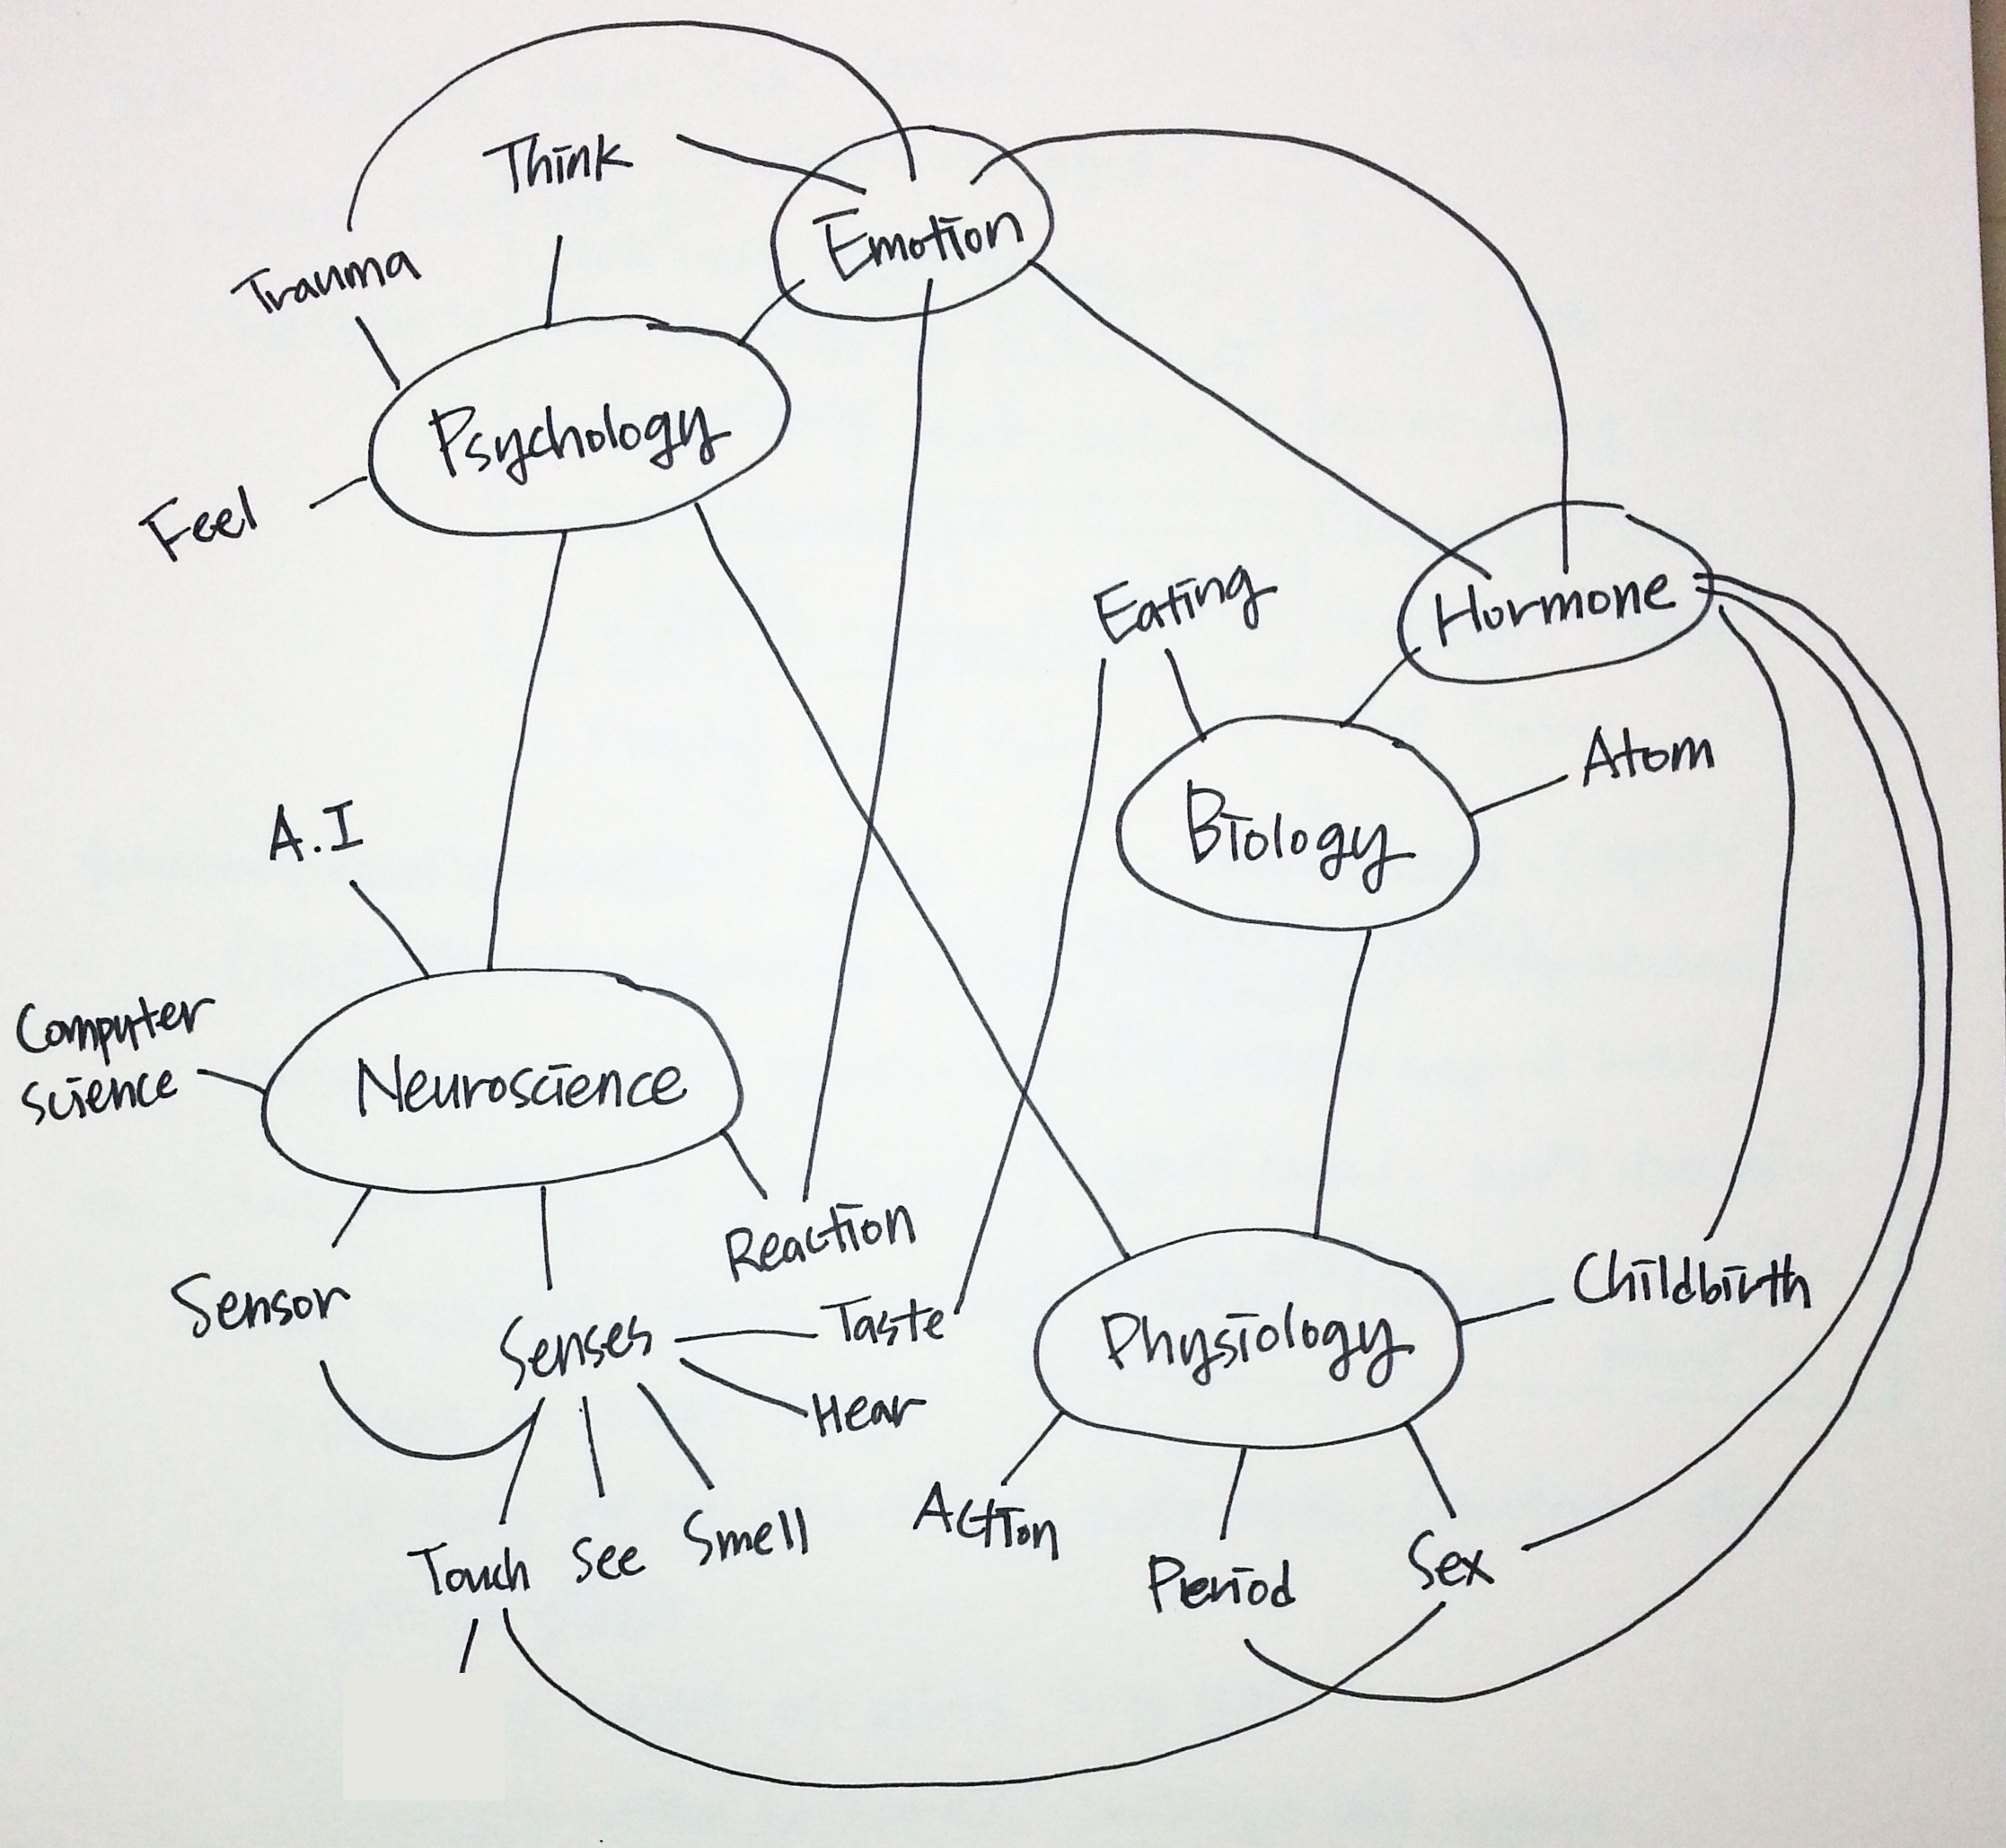 Think
Emotion
Trauma
Psychology
Feel
Eating
Hormone
Atom
Biology
A.I
Computer
science
Neuroscience
Reaction
Sensor
Senses
Taste
Hear
Physiology
Childbirth
Touch
see
Smell
Action
Period
Sex